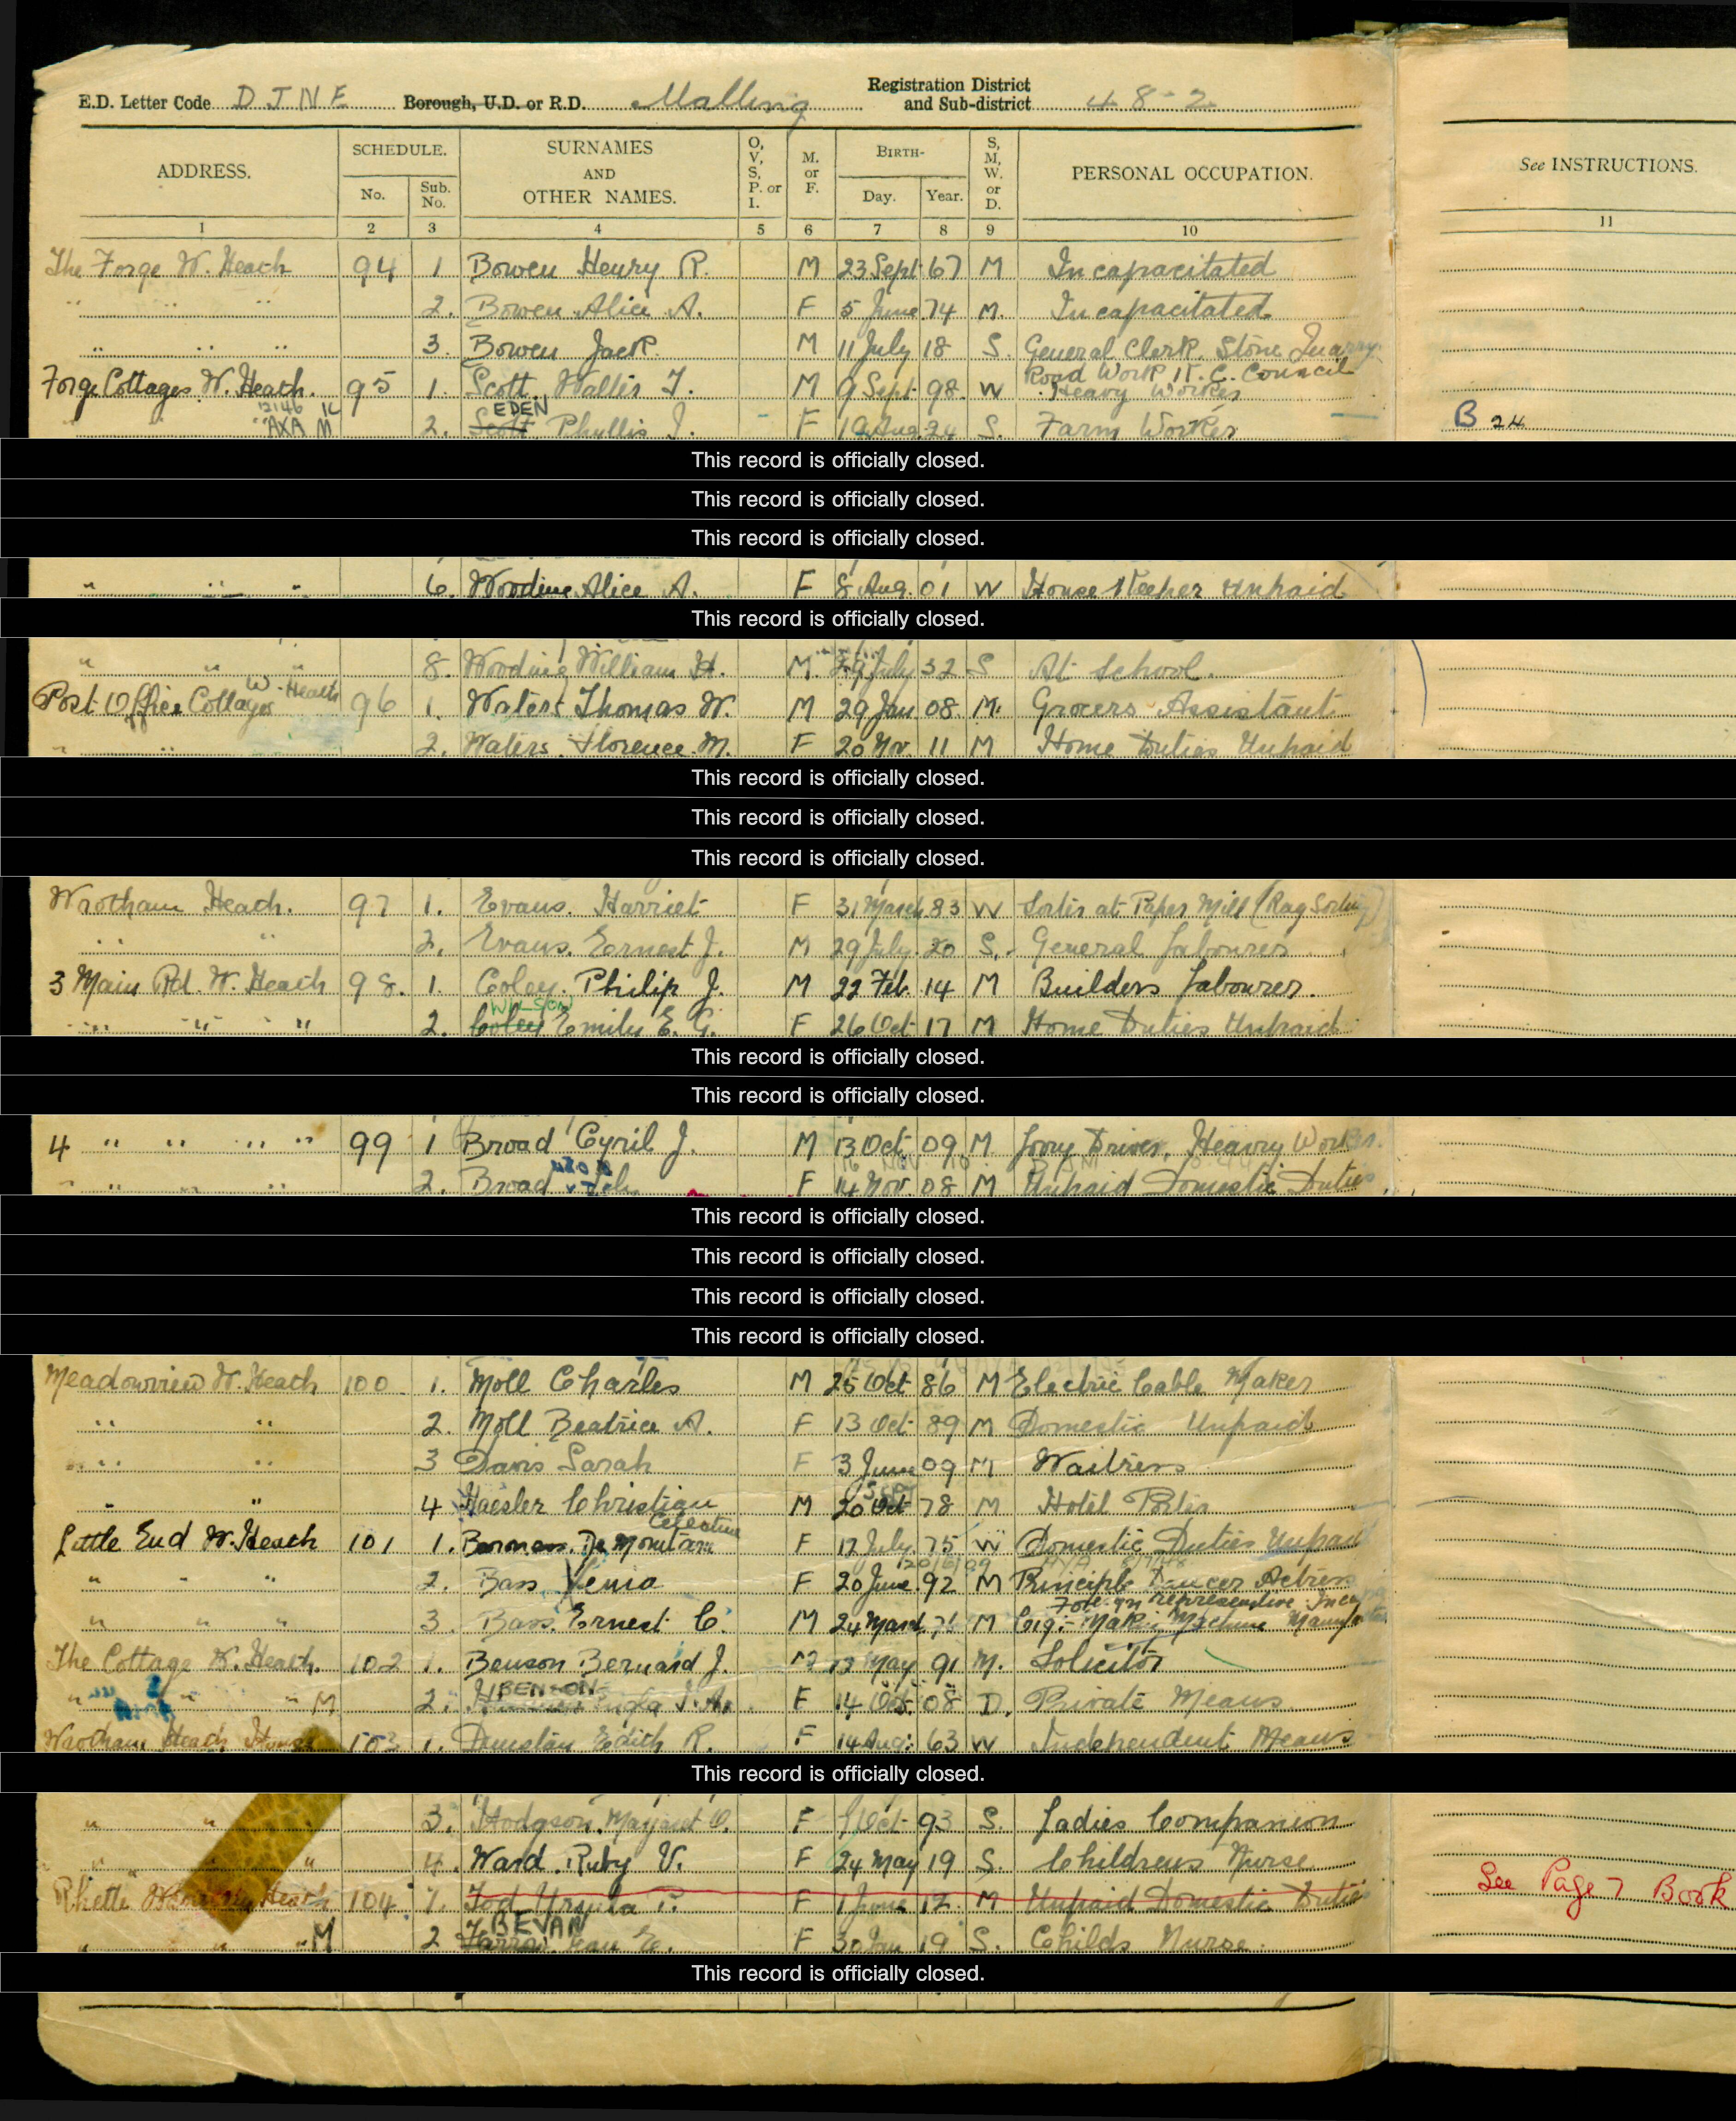 E.D. Letter Code D J N E Borough, U.D. or R.D. Malling Registration District and Sub-district 48-2
ADDRESS. SCHEDULE. No. Sub. No. SURNAMES AND OTHER NAMES. O, V, S, P. or I. M. or F. BIRTH- Day. Year. S, M, W. or D. PERSONAL OCCUPATION. See INSTRUCTIONS.
1 2 3 4 5 6 7 8 9 10 11
The Forge W. Heath 94 1 Bowen Henry R. M 23 Sept 67 M Incapacitated
" " " 2. Bowen Alice A. F 5 June 74 M. Incapacitated
" " " 3. Bowen Jack M 11 July 18 S. General Clerk. Stone Quarry
Forge Cottages W. Heath. 95 1. Scott. Walter T. M 9 Sept 98 W Road Work K. C. Council Heavy Worker
" 2. Scott EDEN Phyllis J. F 10 Aug 24 S. Farm Worker B 24
This record is officially closed.
This record is officially closed.
This record is officially closed.
" " " 6. Wooding Alice A. F 8 Aug. 01 W House Keeper Unpaid
This record is officially closed.
" " " 8. Wooding William H. M 29 July 32 S At School.
Post Office Cottages W. Heath 96 1. Waters Thomas W. M 29 Jan 08 M. Grocers Assistant
" " 2. Waters. Florence. M. F 20 Nov. 11 M Home Duties Unpaid
This record is officially closed.
This record is officially closed.
This record is officially closed.
Wrotham Heath. 97 1. Evans. Harriet F 31 March 83 W Sorter at Paper Mill (Rag Sorting)
" " 2. Evans. Earnest J. M 29 July 20 S. General Labourer
3 Main Rd. W. Heath 98. 1. Coley. Philip J. M 22 Feb. 14 M Builders Labourer.
" " " 2. Coley Emily E. G. F 26 Oct 17 M Home Duties Unpaid
This record is officially closed.
This record is officially closed.
4 " " " " 99 1 Broad Cyril J. M 13 Oct 09 M Lorry Driver, Heavy Worker.
" " " 2. Broad F 14 Nov. 08 M Unpaid Domestic Duties
This record is officially closed.
This record is officially closed.
This record is officially closed.
This record is officially closed.
Meadowview W. Heath 100 1. Moll Charles M 25 Oct 86 M Electric Cable Maker
" " 2. Moll Beatrice A. F 13 Oct 89 M Domestic Unpaid
" " 3 Davis Sarah F 3 June 09 M Waitress
" " 4 Haesler Christian M 20 Oct 78 M Hotel Porter
Little End W. Heath 101 1. Baroness. De Montani Celestine F 17 July 75 W Domestic Duties Unpaid
" " " 2. Bass Xenia F 20 June 92 M Principle Dancer Actress
" " " 3. Bass. Ernest C. M 24 March M Foreign representive Cig: Making Machine
The Cottage W. Heath. 102 1. Benson Bernard J. M 13 May 91 M. Solicitor
" " " M 2. BENSON F 14 Oct 08 D. Private Means
Wrotham Heath House 103 1. Dunstan Edith R. F 14 Aug: 63 W Independent Means
This record is officially closed.
" " 3. Hodgson. Margaret O. F Oct 93 S. Ladies Companion
" " " 4. Ward. Ruby V. F 24 May 19 S. Childrens Nurse
Heath 104 1. Tod Ursula P. F 1 June 12 M Unpaid Domestic Duties See Page 7 Book
" " M 2 BEVAN Jean E. F 30 Jan 19 S. Childs Nurse.
This record is officially closed.